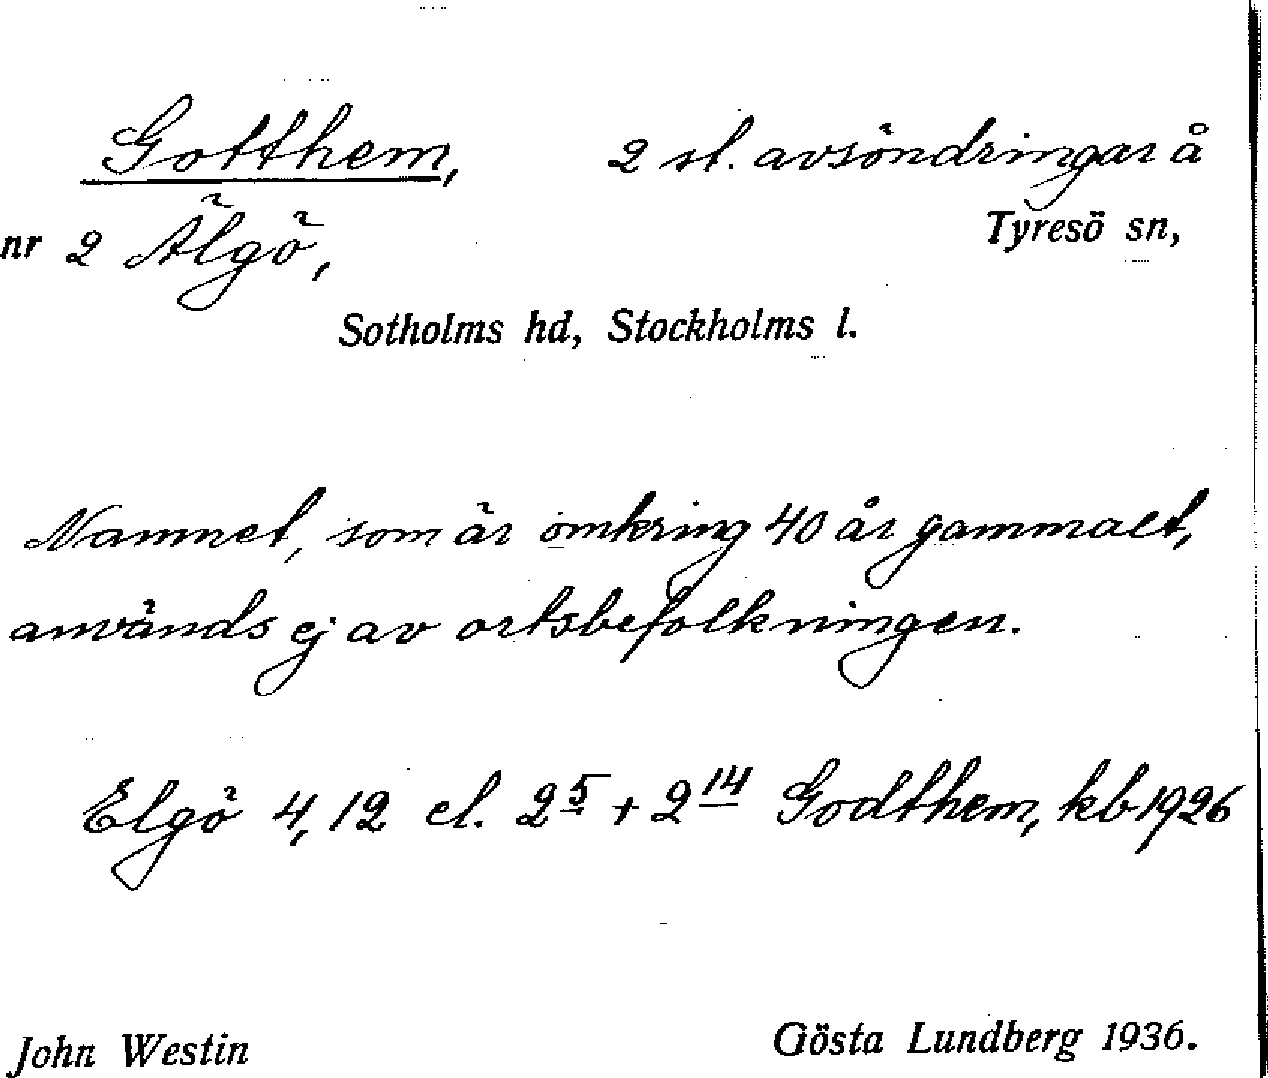 Gotthem, 2 st. avsöndringar å
nr 2 Älgö, Tyresö sn,
Sotholms hd, Stockholms l.
Namnet, som är omkring 40 år gammalt,
används ej av ortsbefolkningen.
Elgö 4, 12 el. 2⁵ + 2¹⁴ Godthem, kb 1926
John Westin Gösta Lundberg 1936.